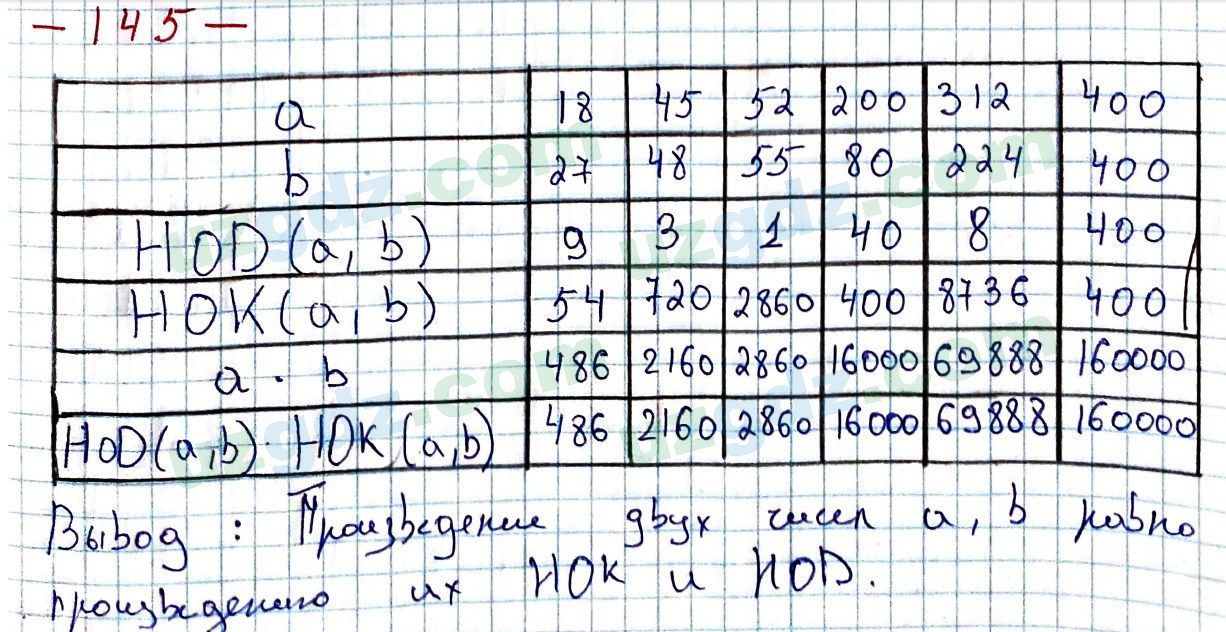 - 145 -
a 18 45 52 200 312 400
b 27 48 55 80 224 400
НОD(a, b) 9 3 1 40 8 400
НОК(a, b) 54 720 2860 400 8736 400
a · b 486 2160 2860 16000 69888 160000
НОD(a,b)· НОК(a,b) 486 2160 2860 16000 69888 160000
Вывод : Произведение двух чисел a, b равно
произведению их НОК и НОD.
uzgdz.com uzgdz.com
uzgdz.com uzgdz.com